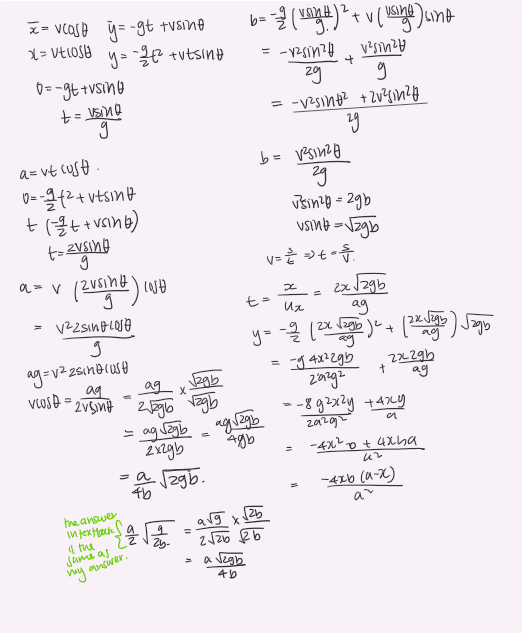 x̄ = vcosθ ȳ = -gt + vsinθ
x = vtcosθ y = -g/2 t² + vtsinθ
0 = -gt + vsinθ
t = vsinθ/g
a = vt cosθ.
0 = -g/2 t² + vtsinθ
t (-g/2 t + vsinθ)
t = 2vsinθ/g
a = v (2vsinθ/g) cosθ
= v² 2sinθcosθ/g
ag = v² 2sinθcosθ
vcosθ = ag/2vsinθ = ag/2√2gb × √2gb/√2gb
= ag√2gb/2×2gb = ag√2gb/4gb
= a/4b √2gb.
the answer
in textbook
is the
same as
my answer.
a/2 √g/2b = a√g/2√2b × √2b/√2b
= a√2gb/4b
b = -g/2 (vsinθ/g)² + v(vsinθ/g)sinθ
= -v²sin²θ/2g + v²sin²θ/g
= -v²sinθ² + 2v²sin²θ/2g
b = v²sin²θ/2g
v²sin²θ = 2gb
vsinθ = √2gb
v = s/t => t = s/v.
t = x/uₓ = 2x√2gb/ag
y = -g/2 (2x√2gb/ag)² + (2x√2gb/ag)√2gb
= -g 4x² 2gb/2a²g² + 2x2gb/ag
= -8g²x²y/2a²g² + 4xy/a
= -4x²b + 4xba/a²
= -4xb(a-x)/a²